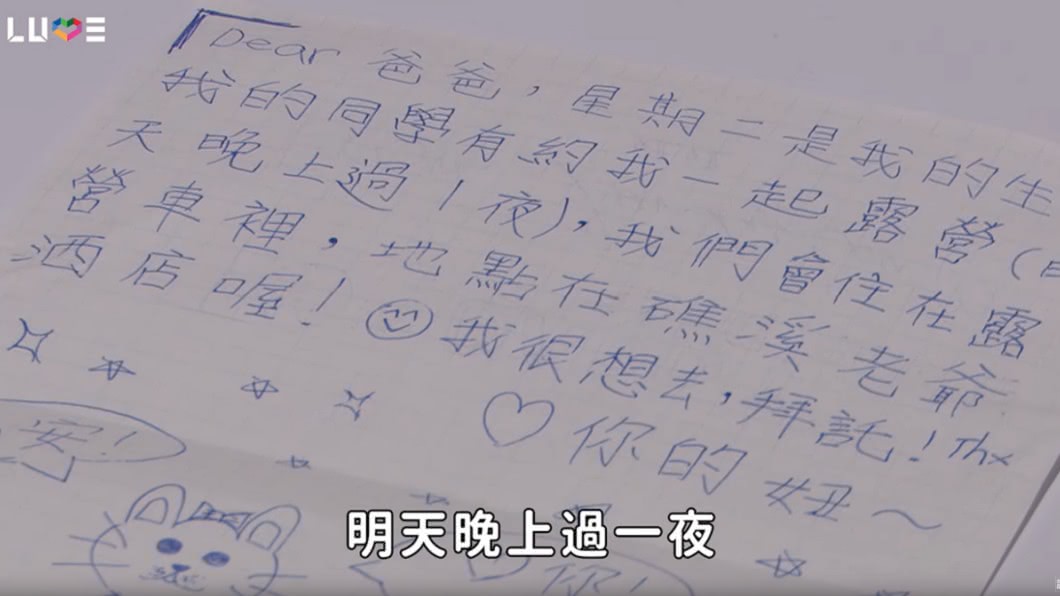 LUVE
Dear 爸爸，星期二是我的生
我的同學有約我一起露營（
天晚上過1夜），我們會住在露
營車裡，地點在礁溪老爺
酒店喔！我很想去，拜託！Thx
你的妞～
安！
你！
明天晚上過一夜